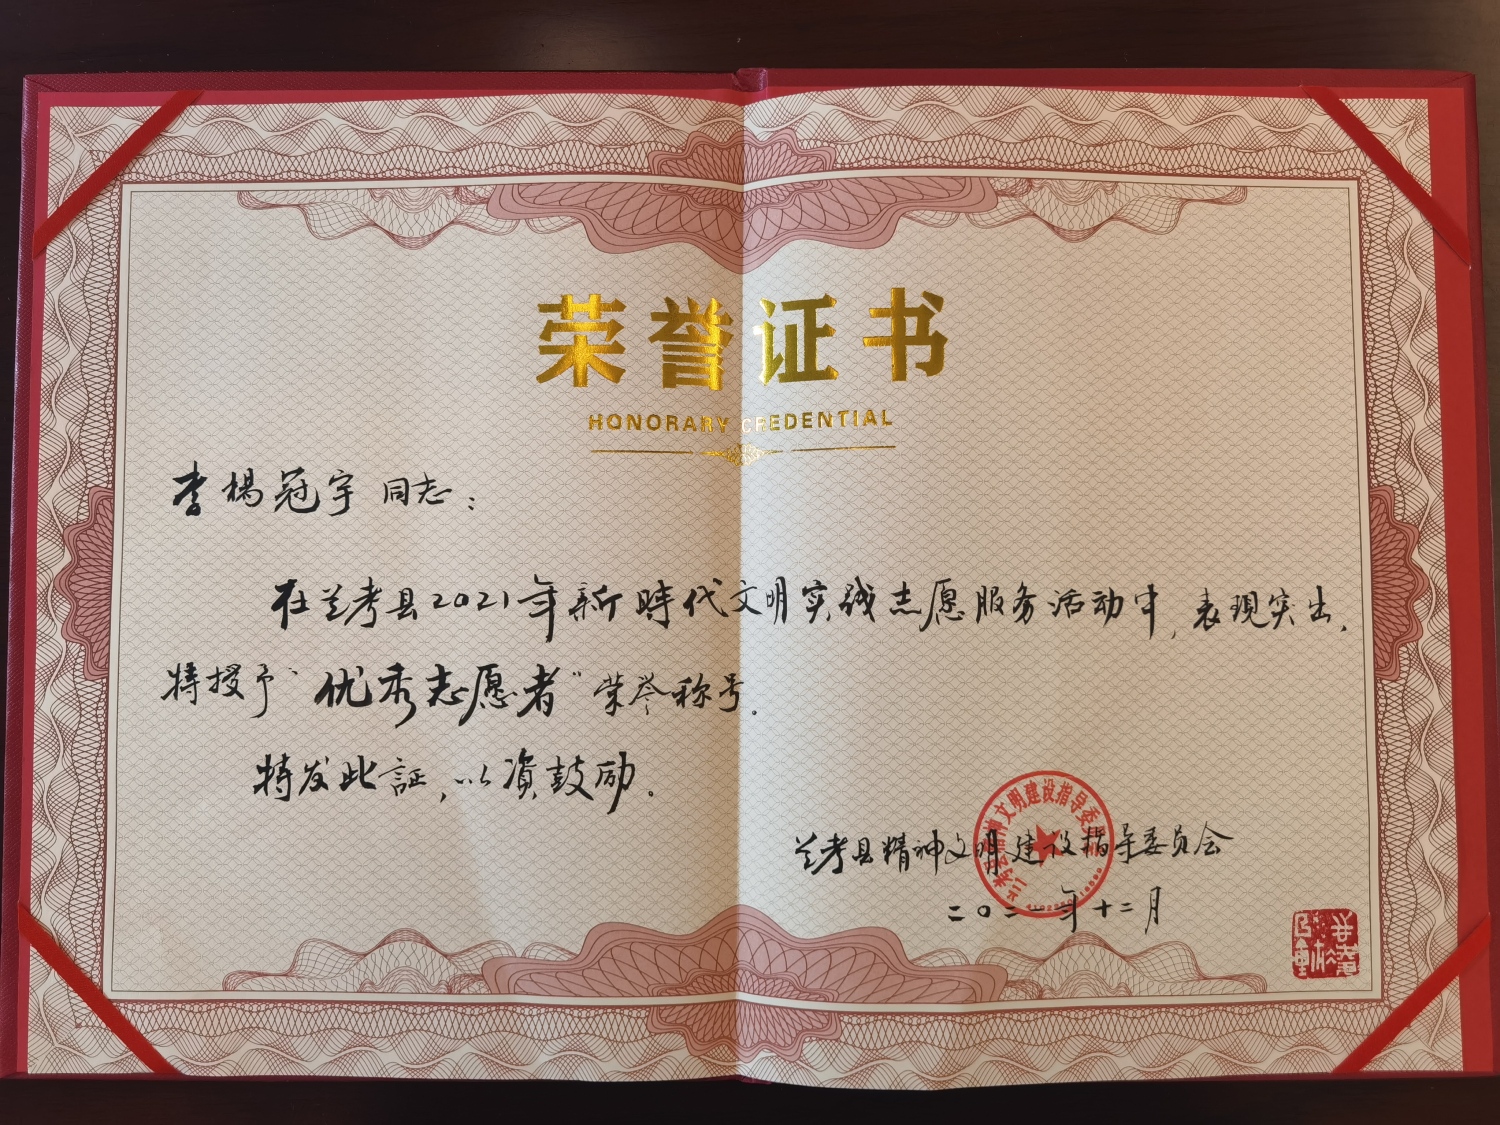 荣誉证书
HONORARY CREDENTIAL
李楊冠宇 同志：
在兰考县2021年新時代文明实践志愿服务活动中，表现突出，
特授予“优秀志愿者”荣誉称号。
特发此証，以资鼓励。
兰考县精神文明建设指导委员会
二〇二一年十二月
兰考县精神文明建设指导委员会